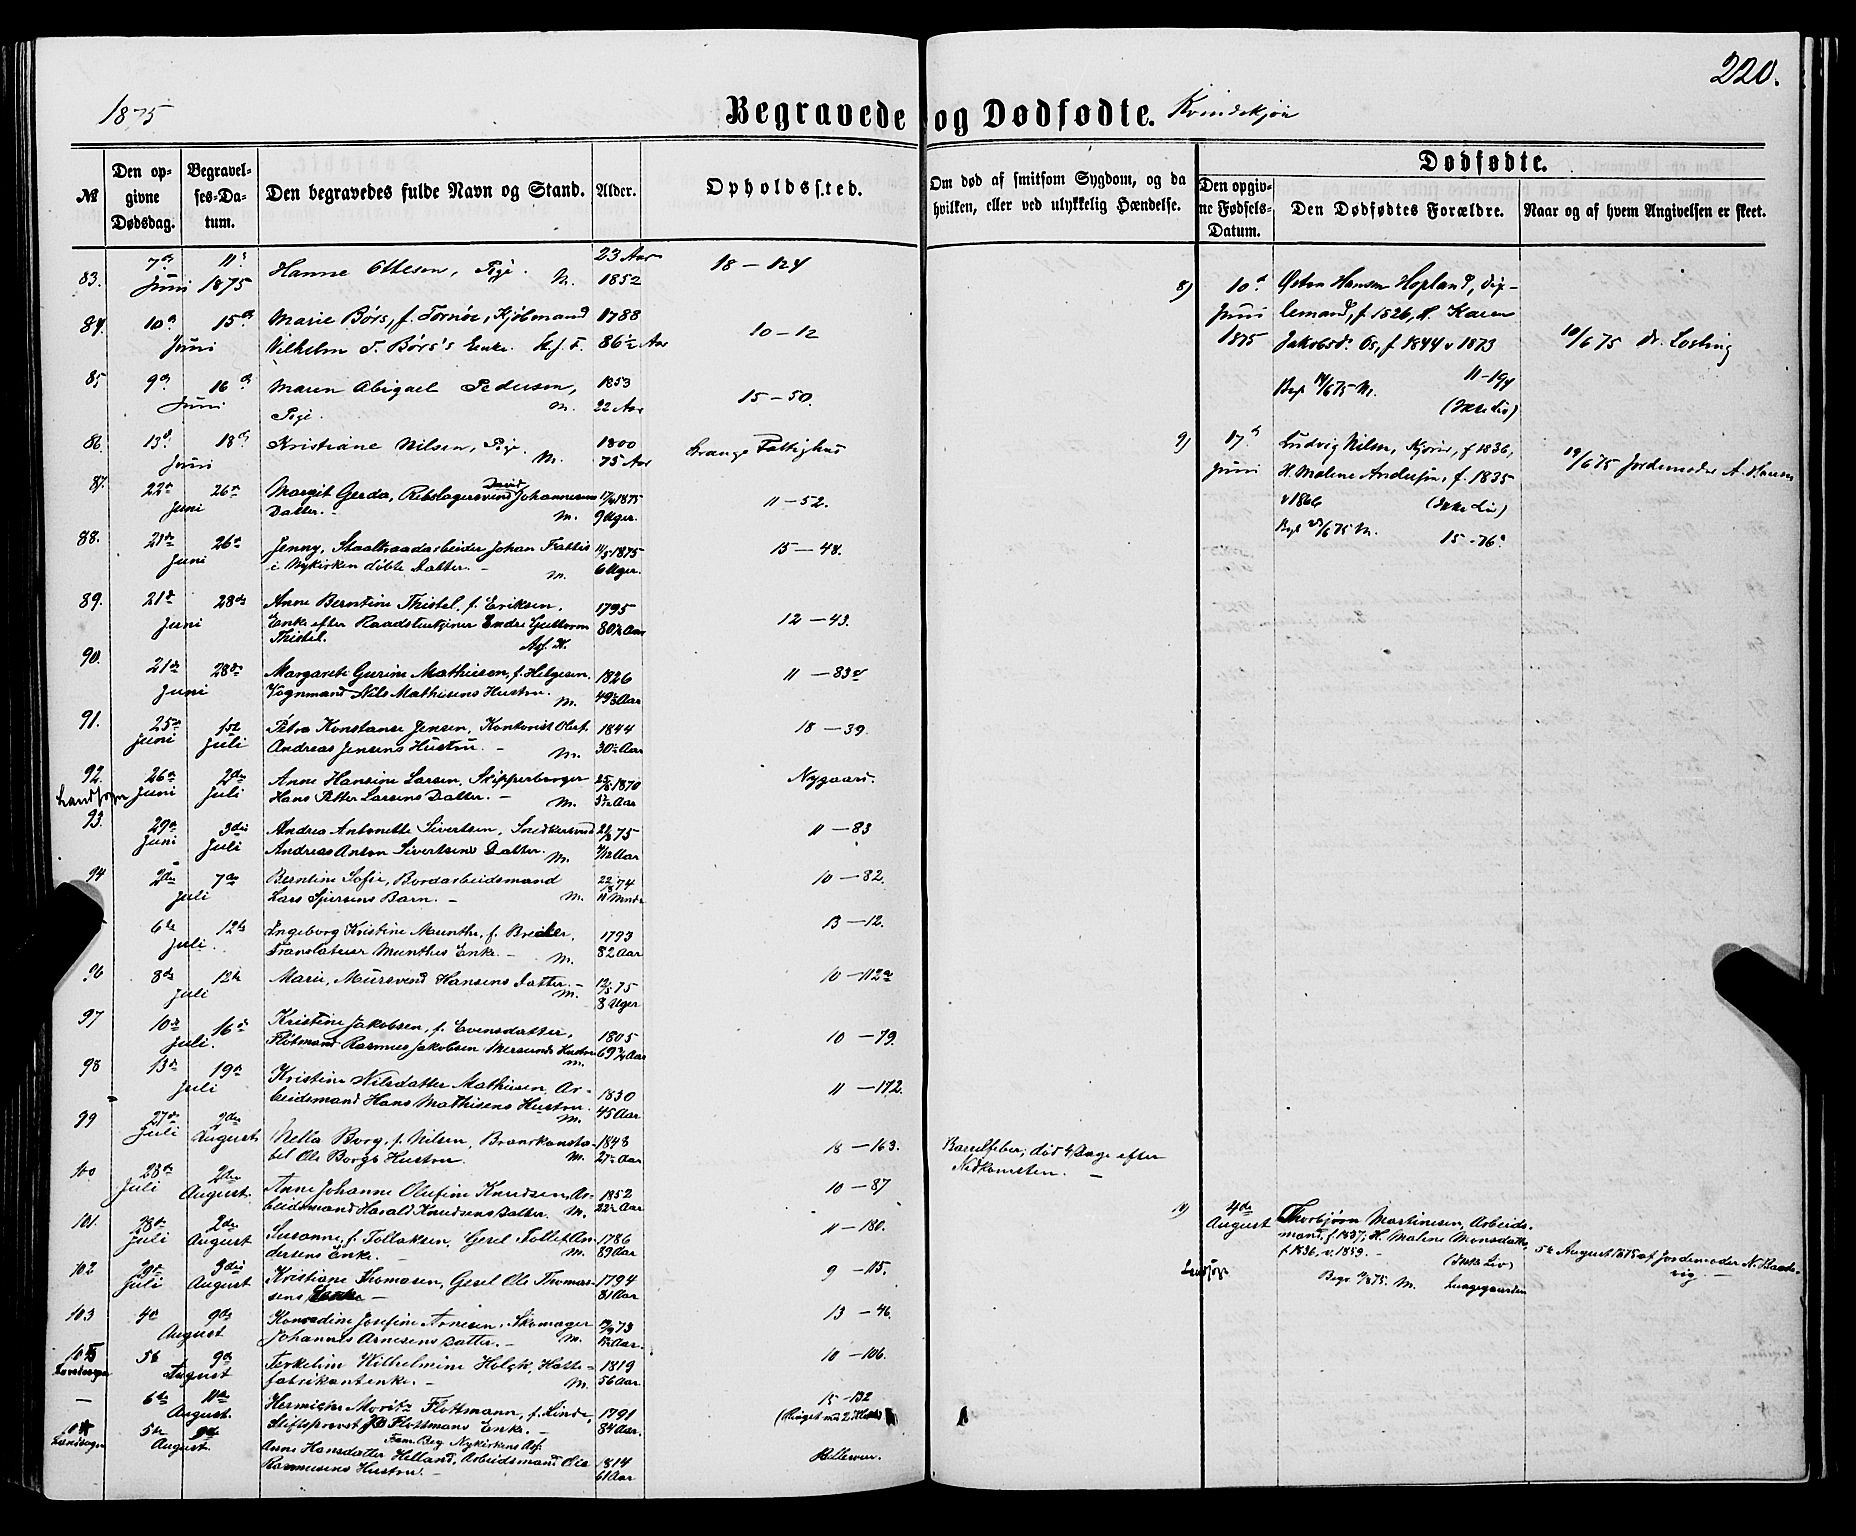 220.
1875
Begravede og Dødfødte. Kvindekjøn
Dødfødte.
№
Den opgivne Dødsdag.
Begravelses-Datum.
Den begravedes fulde Navn og Stand.
Alder.
Opholdssted.
Om død af smitsom Sygdom, og da hvilken, eller ved ulykkelig Hændelse.
Den opgivne Fødsels-Datum.
Den Dødfødtes Forældre.
Naar og af hvem Angivelsen er skeet.
83. 7de Juni 11te 1875 Hanne Ottesen, Pige. M. 23 Aar 1852 18-124
84. 10de 15de Juni Marie Børs, f. Tornøe, Kjøbmand 1788 10-12
Vilhelm Børs's Enke. 86½ Aar
85 9de 16de Juni Maren Abigael Pedersen, 1853 15-50.
Pige. M. 22 Aar
86. 13de 18de Juni Kristiane Nilsen, Pige. M. 1800 75 Aar Stranges Fattighus
87. 22de 26de Juni Margit Gerda, Rebslagersvend David Johannesens 1875 11-52.
Datter. - M. 9 Uger.
88. 21de 26de Juni Jenny, Staaltraadarbeider Johan 1875 15-48.
i Nykirken døbte Datter. - M. 6 Uger.
89. 21de 28de Juni Anne Berntine Thistel, f. Eriksen, 1795 12-43.
Enke efter Raadstuetjener Endre Guttorm 80½ Aar
Thistel.
90. 21de 28de Juni Margarete Gurine Mathiesen, f. Helgesen. 1826 11-83
Vognmand Nils Mathisens Hustru. M. 49½ Aar
91. 25de Juni 1ste Juli Petra Konstanse Jensen, Kontorist Oluf 1844 18-39.
Andreas Jensens Hustru. - M. 30½ Aar
92. Landsogn 26de Juni 2den Juli Anne Hansine Larsen, Skipperborger 1870 Nygaard.
Hans Petter Larsens Datter. - M. Aar
93. 29de Juni 3die Juli Andrea Antonette Sivertsen, Snedkersvend 75 11-83
Andreas Anton Sivertsens Datter. M. Aar
94 2den 7de Juli Berntine Sofie, Bordarbeidsmand 74 10-82.
Lars Barn. - M. 11 Mndr
6te 12te Juli. Ingeborg Kristine Munthe, f. 1793 13-12.
Translateur Munthes Enke. - M. 82 Aar
96 8de 13de Juli Marie, Mursvend Hansens Datter. - M. 75 8 Uger 10-112a
97 10de 16de Juli. Kristine Jakobsen, f. Evensdatter, 1805 10-79.
Flotmand Rasmus Jakobsen Hustru M. 69 Aar
98 13de 19de Juli Kristine Nilsdatter Mathisen, Ar- 1830 11-172.
beidsmand Hans Mathisens Hustru. M. 45 Aar
99 27de Juli 2den August Nella Borg, f. Nilsen, Brandkonsta- 1848 18-163. Barselfeber; død 4 Dage efter
bel Ole Borgs Hustru. M. 27½ Aar Nedkomsten. -
100 28de Juli 2den August. Anne Johanne Olufine Knudsen, Ar- 1852 10-87
beidsmand Harald Knudsens Datter. M. 22½ Aar
101. 28de Juli 2den August Susanne, f. Tollaksen, Gesel Tollef An- 1786 11-180.
dersens Enke. - M. 89 Aar
102 29de Juli 3die August Kristiane Thomasen, Gesel Ole Thomas- 1794 9-115.
sens Enke - 81 Aar
103 4de 9de August Konradine Josefine Arnesen, Skomager 73 13-46.
Johannes Arnesens Datter. - M. Aar.
105 Landsogn 5te 9de August Terkeline Wilhelmine Holck, Hatte- 1819 10-106.
fabrikantenke. - M. 56 Aar
- 6te 11te August. Moritz Flottmann, f. Linde, 1791 15-132
Stiftsprovst Flottmans Enke. - 84 Aar. (Ringet med 2 Klokker)
Fam. Beg. Nykirkens
104 Landsogn 5te 9de August. Anne Hansdatter Helland, Arbeidsmand Ole 1814
Rasmusens Hustru. - 61 Aar
8) 10de Juni 1875 Østen Hansen Hopland,
f. 1826, H. Karen
Jakobsd. Os, f. 1844 v 1873 10/6 75 Dr. Losting
Begr. 14/6 75 M. 11-194
(Ikke Liv)
9) 17de Juni Ludvig Nilsen, Kjører, f 1836,
H. Malene Andersen, f. 1835 19/6 75 Jordemoder A. Hansen
v 1866 (Ikke Liv)
Begr. 23/6 75 M. 15-76
4de August Thorbjørn Martinesen, Arbeids-
mand, f. 1837; H. Maline Monsdatter,
f. 1836, v. 1859. - 5te August 1875 af Jordemoder N.
(Ikke Liv)
Landsogn Begr. 75. M. Lungegaarden